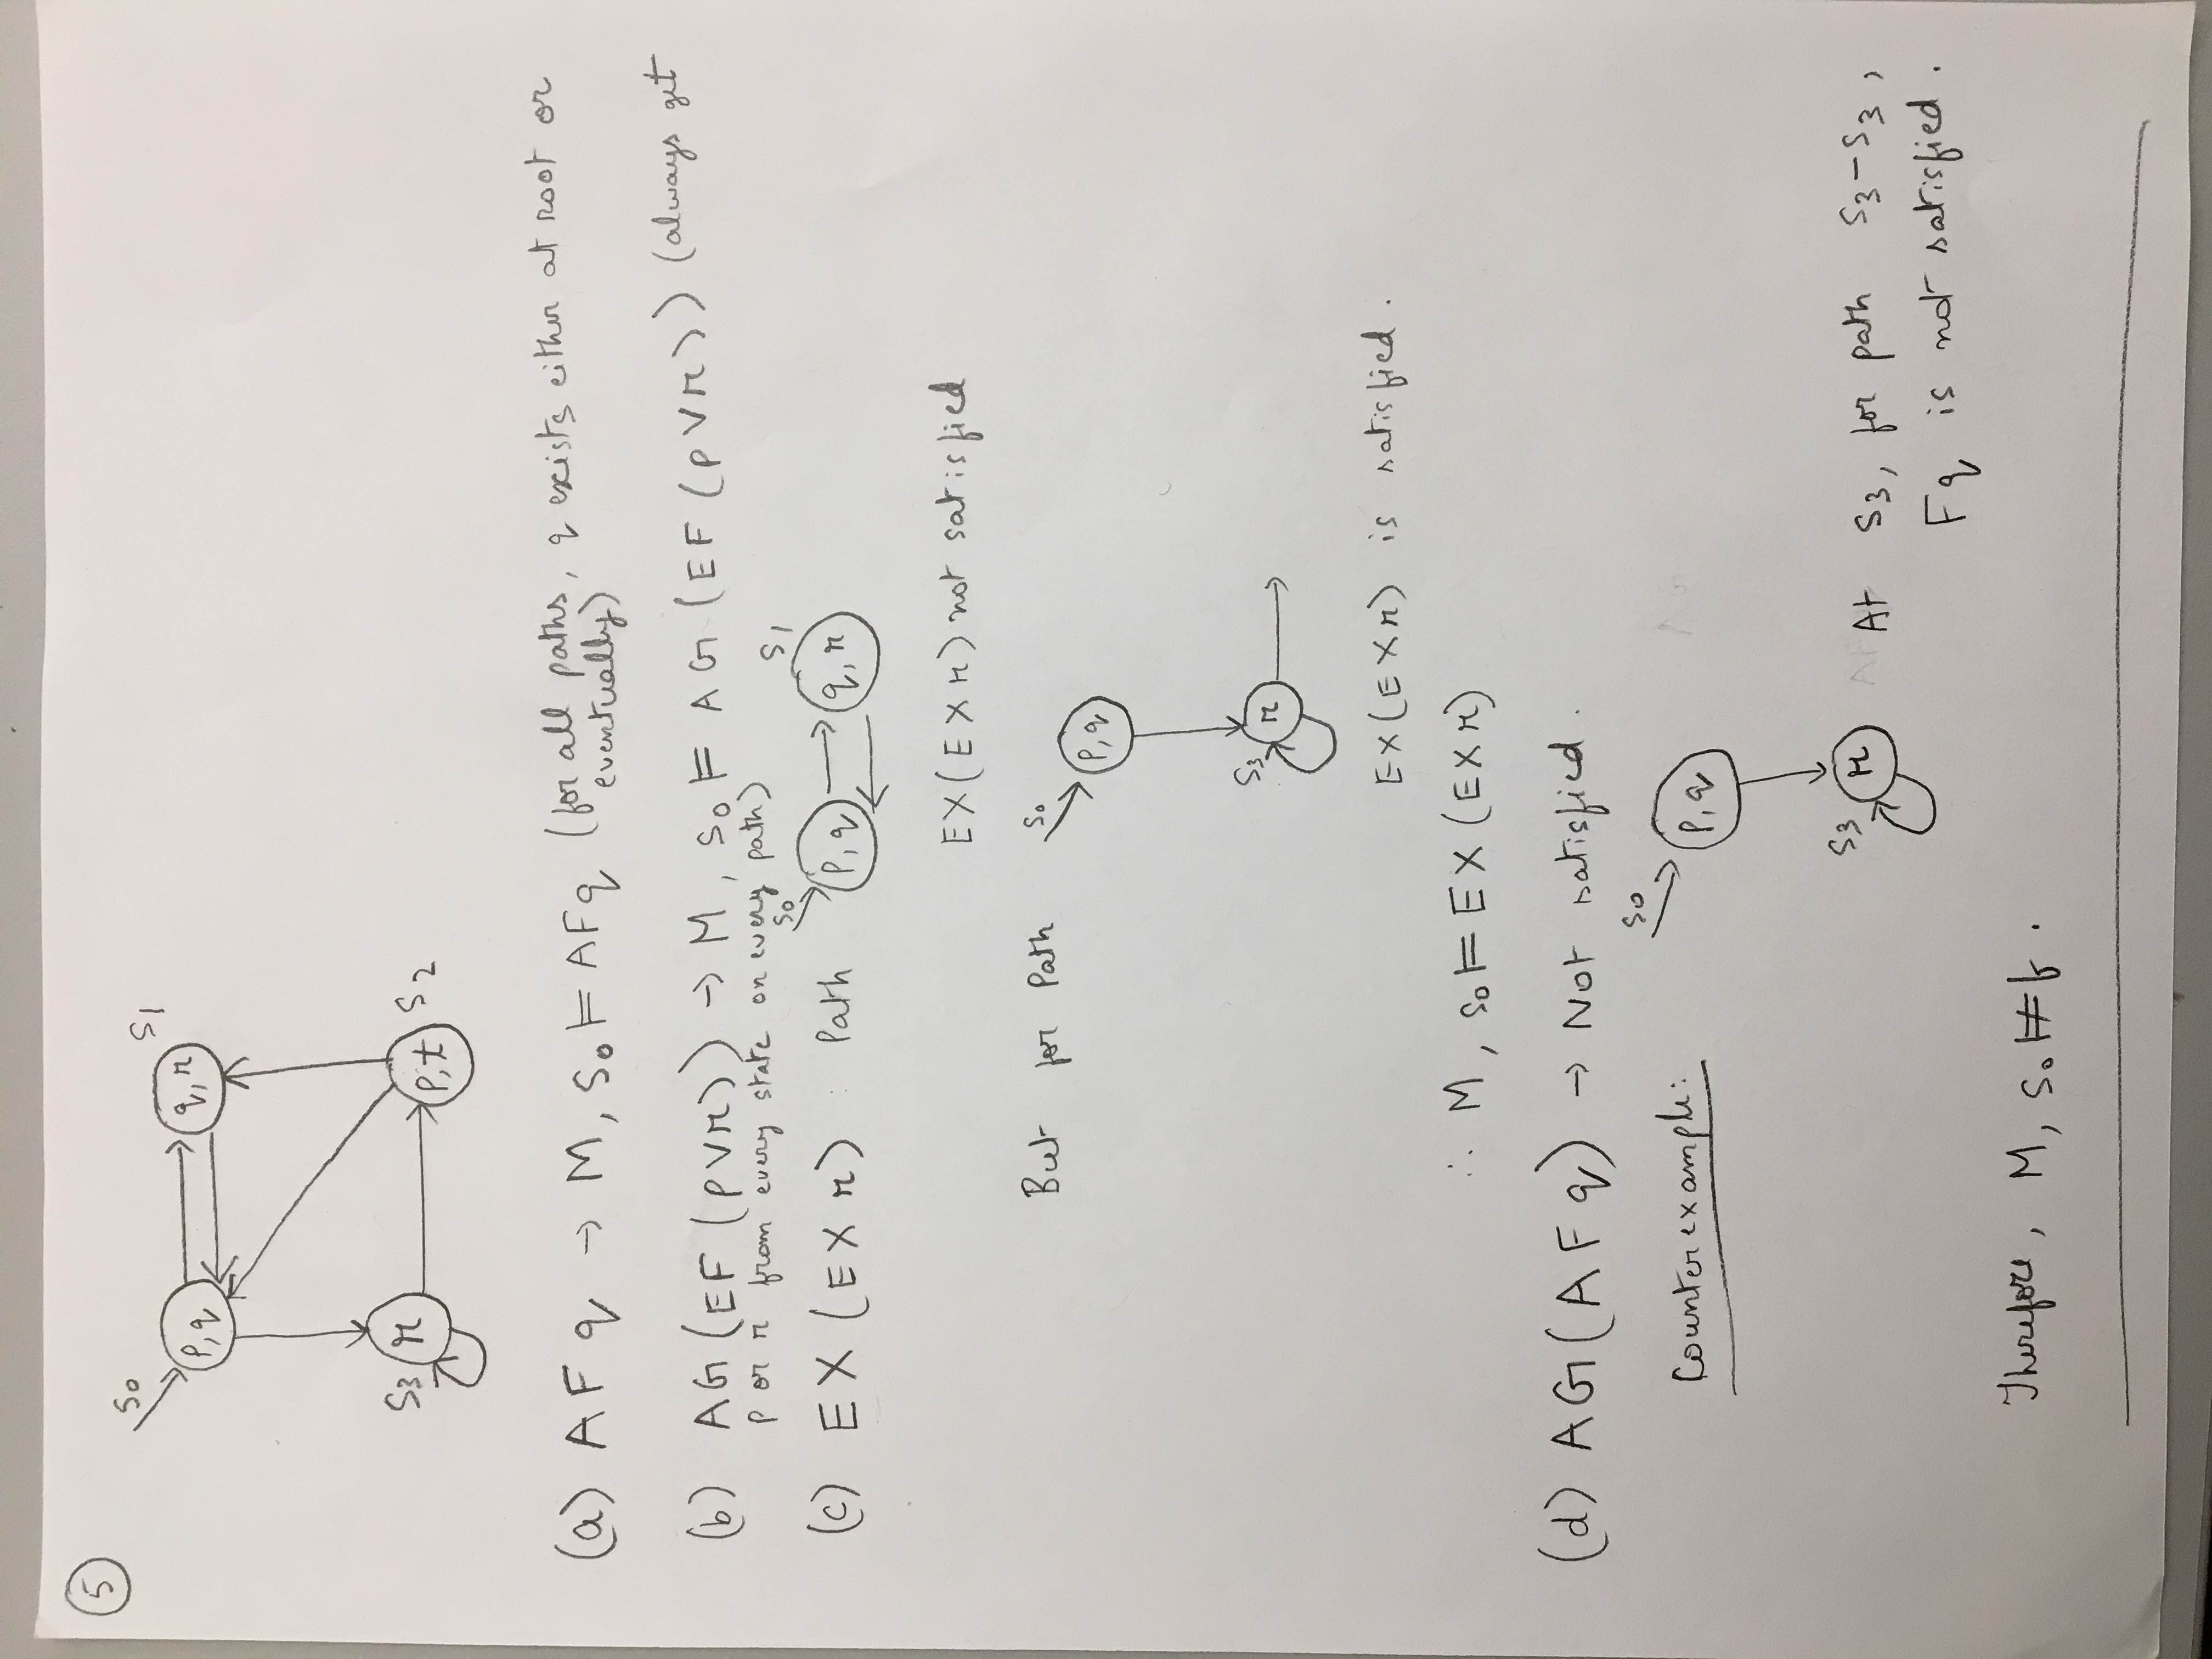 5
S0
S1
p,q
q,r
S3
r
p,t
S2
(a) AF q → M, S0 ⊨ AFq (for all paths, q exists either at root or
eventually)
(b) AG(EF(p∨r)) → M, S0 ⊨ AG(EF(p∨r)) (always get
p or r from every state on every path)
S0
S1
(c) EX(EX r) : Path
p,q
q,r
EX(EX r) not satisfied
But for Path
S0
p,q
S3
r
EX(EX r) is satisfied.
∴ M, S0 ⊨ EX(EX r)
(d) AG(AF q) → Not satisfied.
S0
Counterexample:
p,q
S3
r
At S3, for path S3-S3,
Fq is not satisfied.
Therefore, M, S0 ⊭ f.